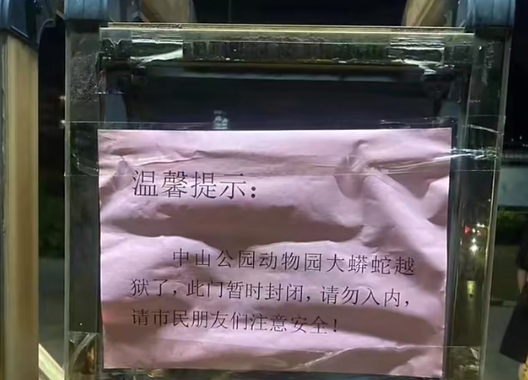 温馨提示：
中山公园动物园大蟒蛇越
狱了，此门暂时封闭，请勿入内，
请市民朋友们注意安全！